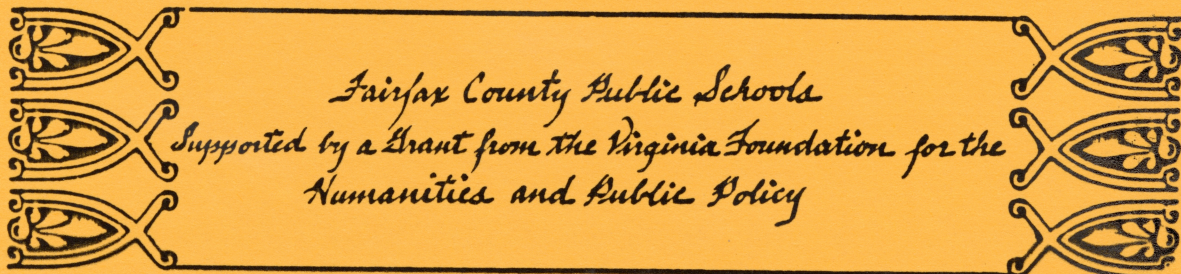 Fairfax County Public Schools
Supported by a Grant from the Virginia Foundation for the
Humanities and Public Policy